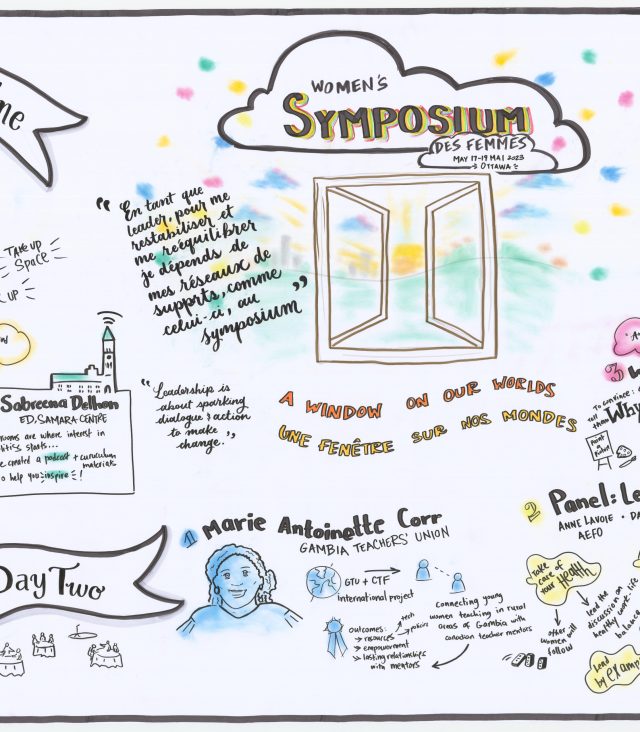 ne
TAKE UP
SPACE
UP
WOMEN'S
SYMPOSIUM
DES FEMMES
MAY 17-19 MAI 2023
OTTAWA
"En tant que
leader, pour me
restabiliser et
me rééquilibrer
je dépends de
mes réseaux de
supports, comme
celui-ci, au
symposium"
"Leadership is
about sparking
dialogue & action
to make
change."
A WINDOW ON OUR WORLDS
UNE FENÊTRE SUR NOS MONDES
Sabreena Delhon
ED, SAMARA CENTRE
rooms are where interest in
itics starts...
e created a podcast + curriculum
materials
o help you inspire!
Day Two
1 Marie Antoinette Corr
GAMBIA TEACHERS' UNION
GTU + CTF
international project
connecting young
women teaching in rural
areas of Gambia with
canadian teacher mentors
outcomes:
resources
tech
policies
empowerment
lasting relationships
with mentors
3
to convince
Why
Paint
a
2 Panel: Le
ANNE LAVOIE · DA
AEFO
Take care
of
your HEALTH
other
women will
follow
lead the
discussion on
healthy work-life
balance
Lead
by examp